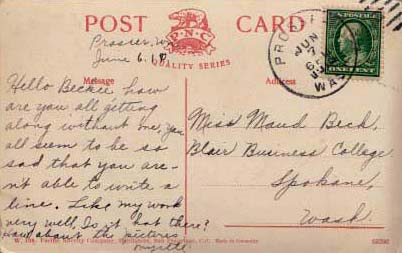 POST CARD
P.N.C.
QUALITY SERIES
Prosser, W
June 6. 1
Message
Address
PROSSER
JUN
7
WASH
U.S. POSTAGE
ONE CENT
Hello Beckie how
are you all getting
along without me, you
all seem to be so
sad that you are-
n't able to write a
line. Like my work
very well. Is it hot there?
How about the pictures
Myrtle
Miss Maud Beck,
Blair Business College
Spokane,
Wash.
Pacific Novelty Company, San Francisco, Cal. Made in Germany